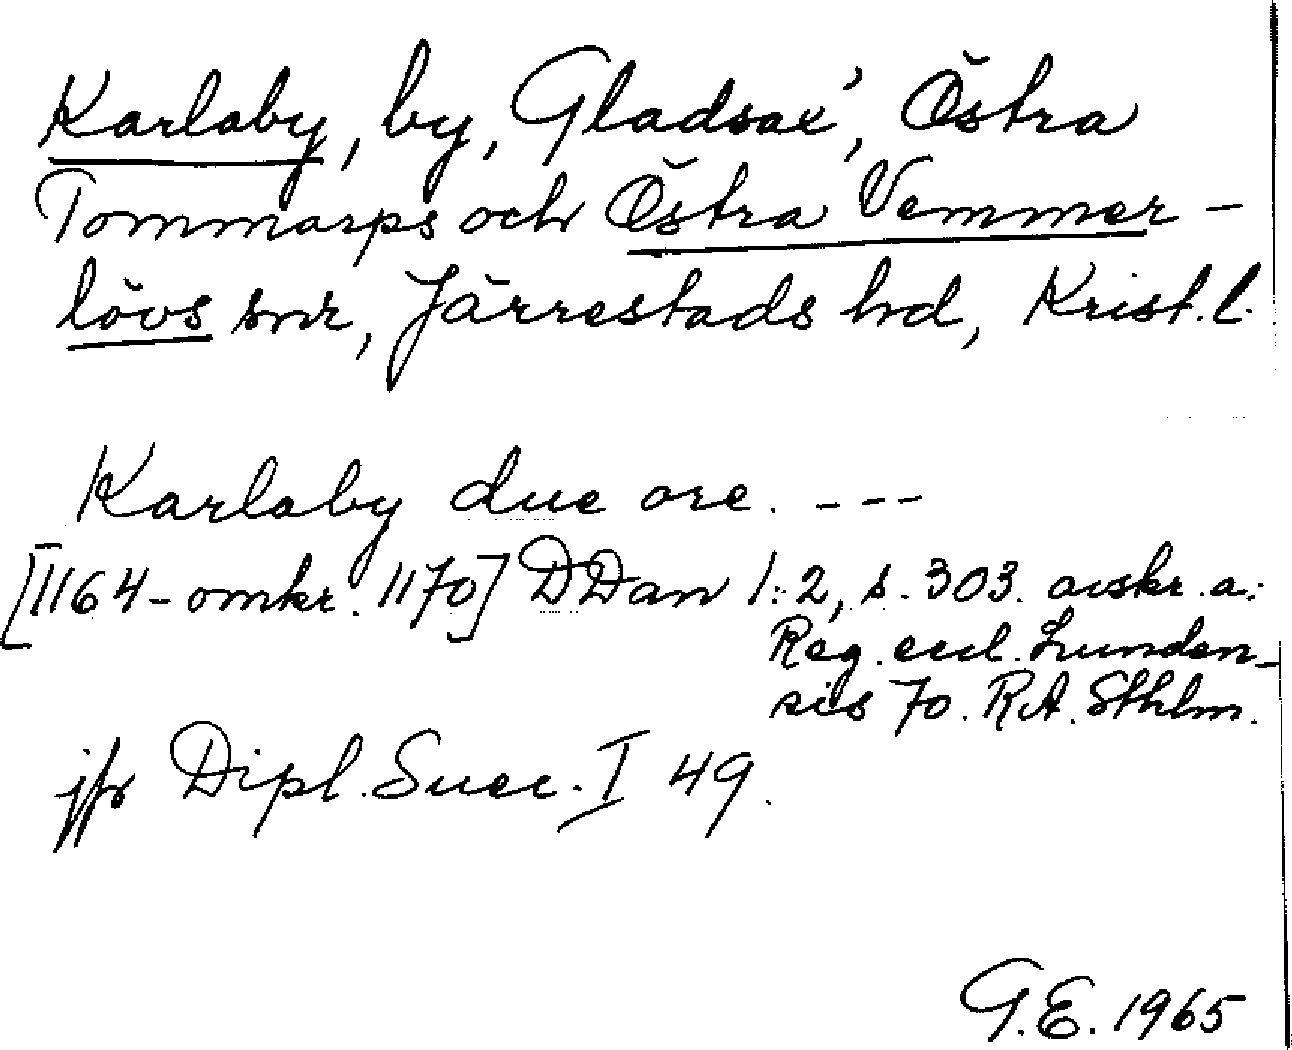 Karlaby, by, Gladsax', Östra
Tommarps och Östra Vemmer-
lövs snr, Järrestads hd, Krist. l.
Karlaby due ore. ---
[1164-omkr. 1170] DDan 1:2, s. 303. avskr. a:
Reg. eccl. Lunden-
sis 70. RA. Sthlm.
jfr Dipl. Suec. I 49.
G.E. 1965